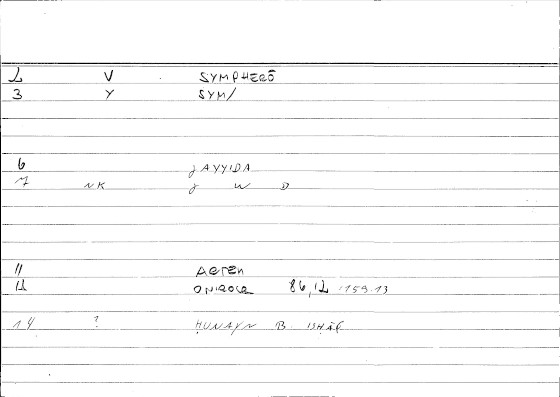 2 V SYMPHERŌ
3 Y SYM/
6 JAYYIDA
7 NK J W D
11 ARTEM
12 ONIROCR 86,12 : 159.13
14 ? ḤUNAYN B. ISḤĀQ